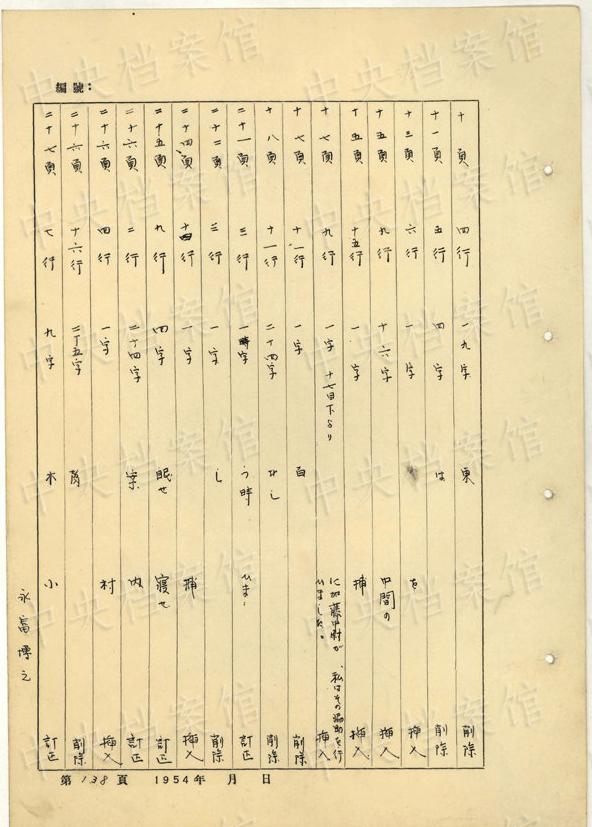 編號：
十頁 四行 一九字 東 削除
十一頁 五行 四字 は 削除
十三頁 六行 一字 を 挿入
十五頁 九行 十六字 中間の 挿入
十五頁 十五行 一字 捕 挿入
十七頁 九行 一字 十七日下より に加藤中尉が、私はその協助を行ひました。 挿入
十七頁 十一行 一字 百 削除
十八頁 十一行 二十四字 なし 削除
二十一頁 三行 一字 う時 ひま 訂正
二十二頁 三行 一字 し 削除
二十四頁 十四行 一字 捕 挿入
二十五頁 九行 四字 眠せ 寝せ 訂正
二十六頁 二行 二十四字 案 内 訂正
二十六頁 四行 一字 村 挿入
二十六頁 十六行 二十五字 削除
二十七頁 七行 九字 木 小 訂正
永富博之
第138頁 1954年 月 日
中央档案馆